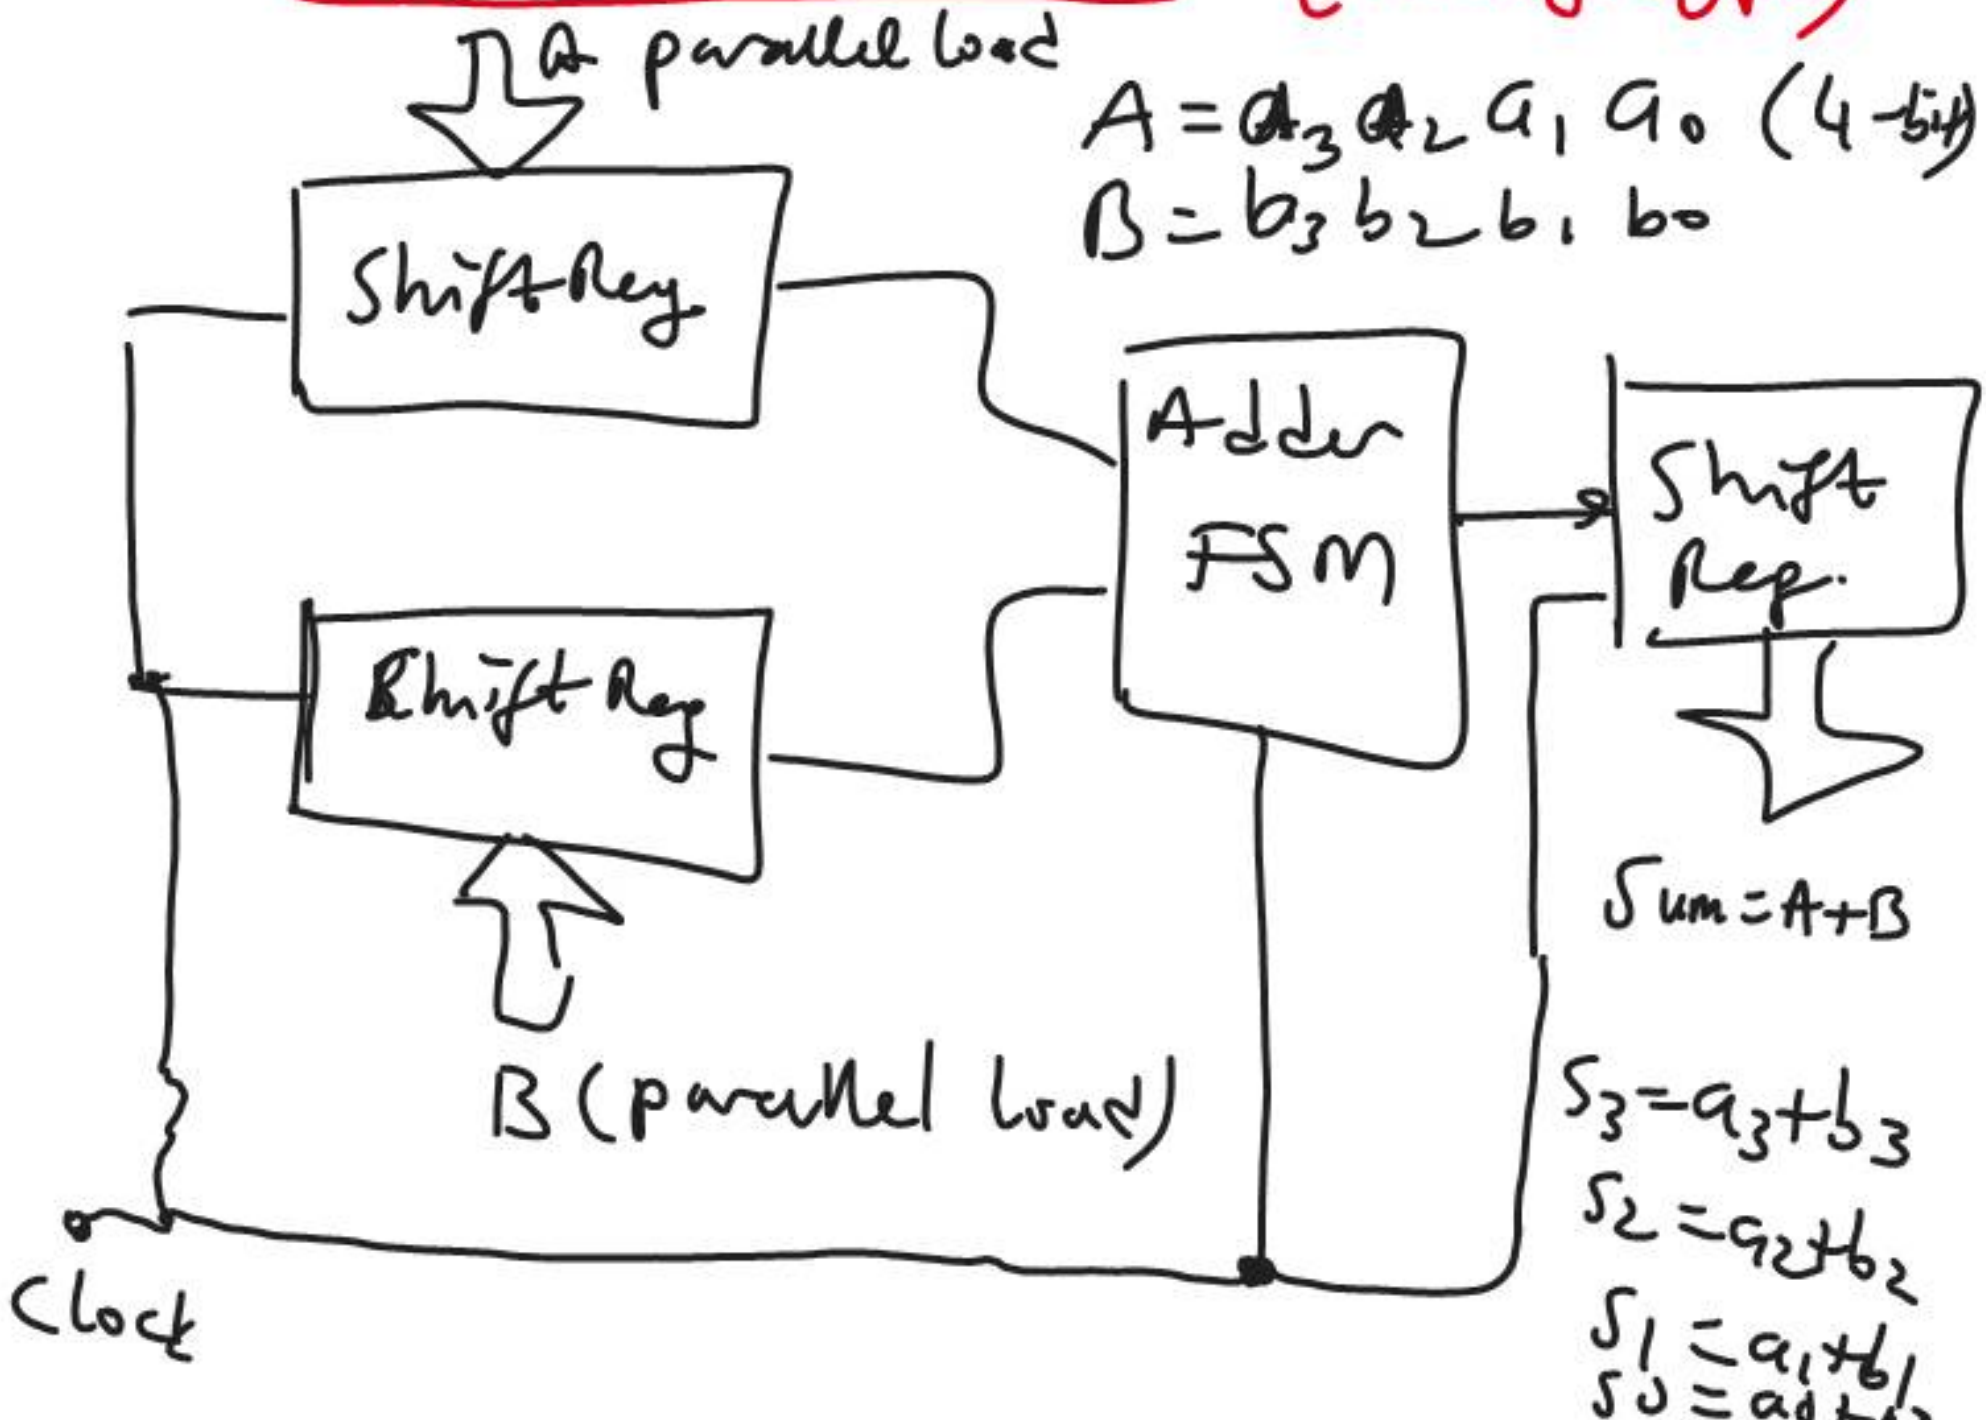 A parallel load
A = a3 a2 a1 a0 (4-bit)
B = b3 b2 b1 b0
Shift Reg.
Adder
FSM
Shift
Reg.
Shift Reg
Sum = A+B
B (parallel load)
S3 = a3+b3
S2 = a2+b2
S1 = a1+b1
S0 =
Clock